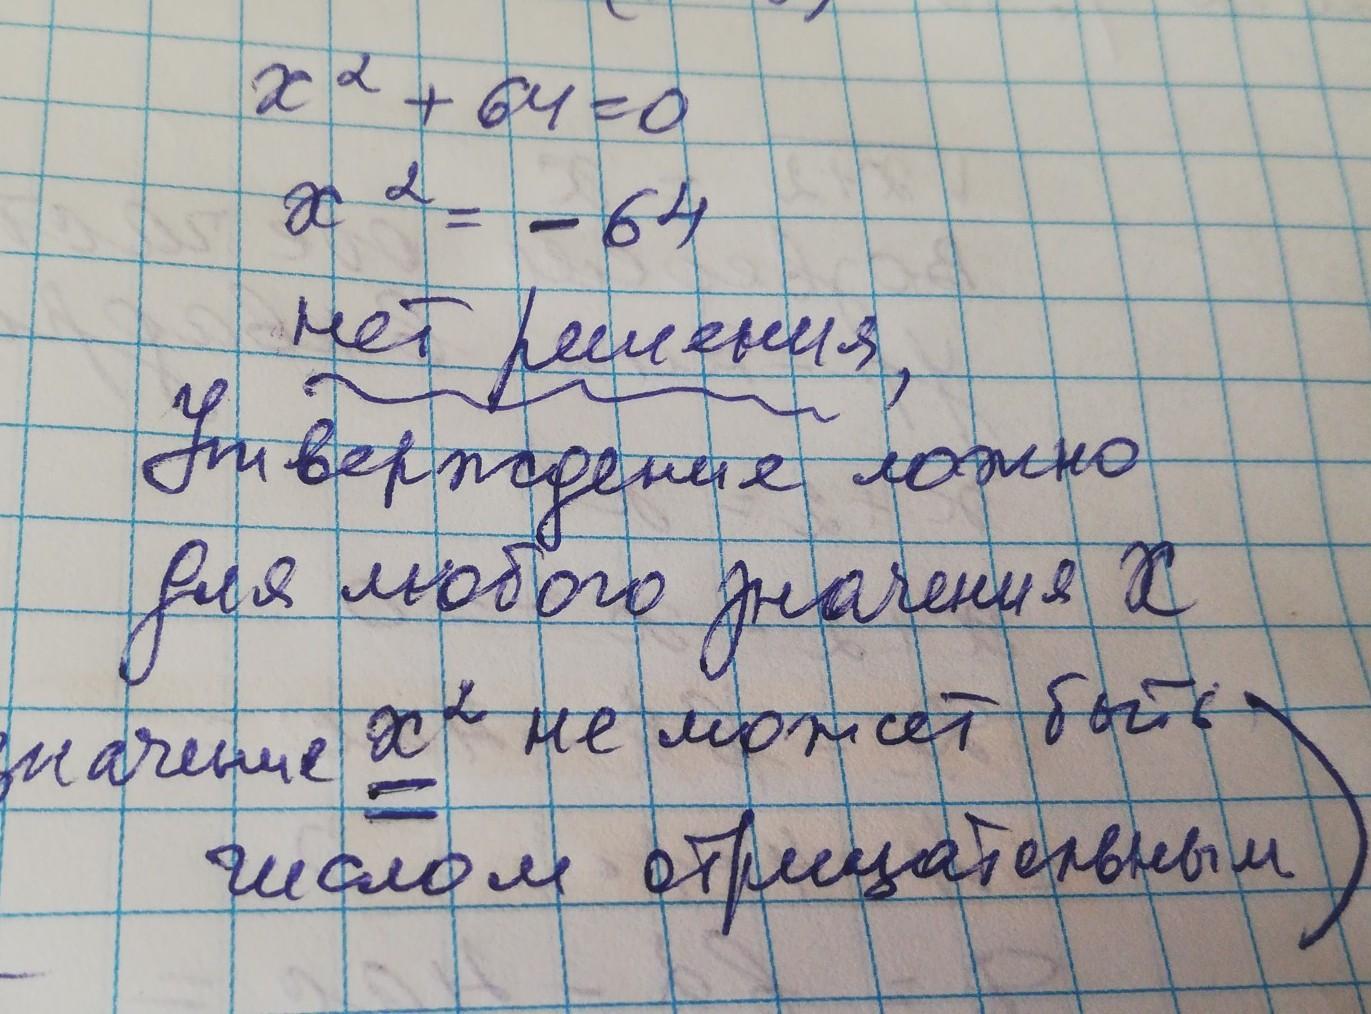 x² + 64 = 0
x² = - 64
нет решения,
Утверждение ложно
для любого значения x
значение x² не может быть
числом отрицательным